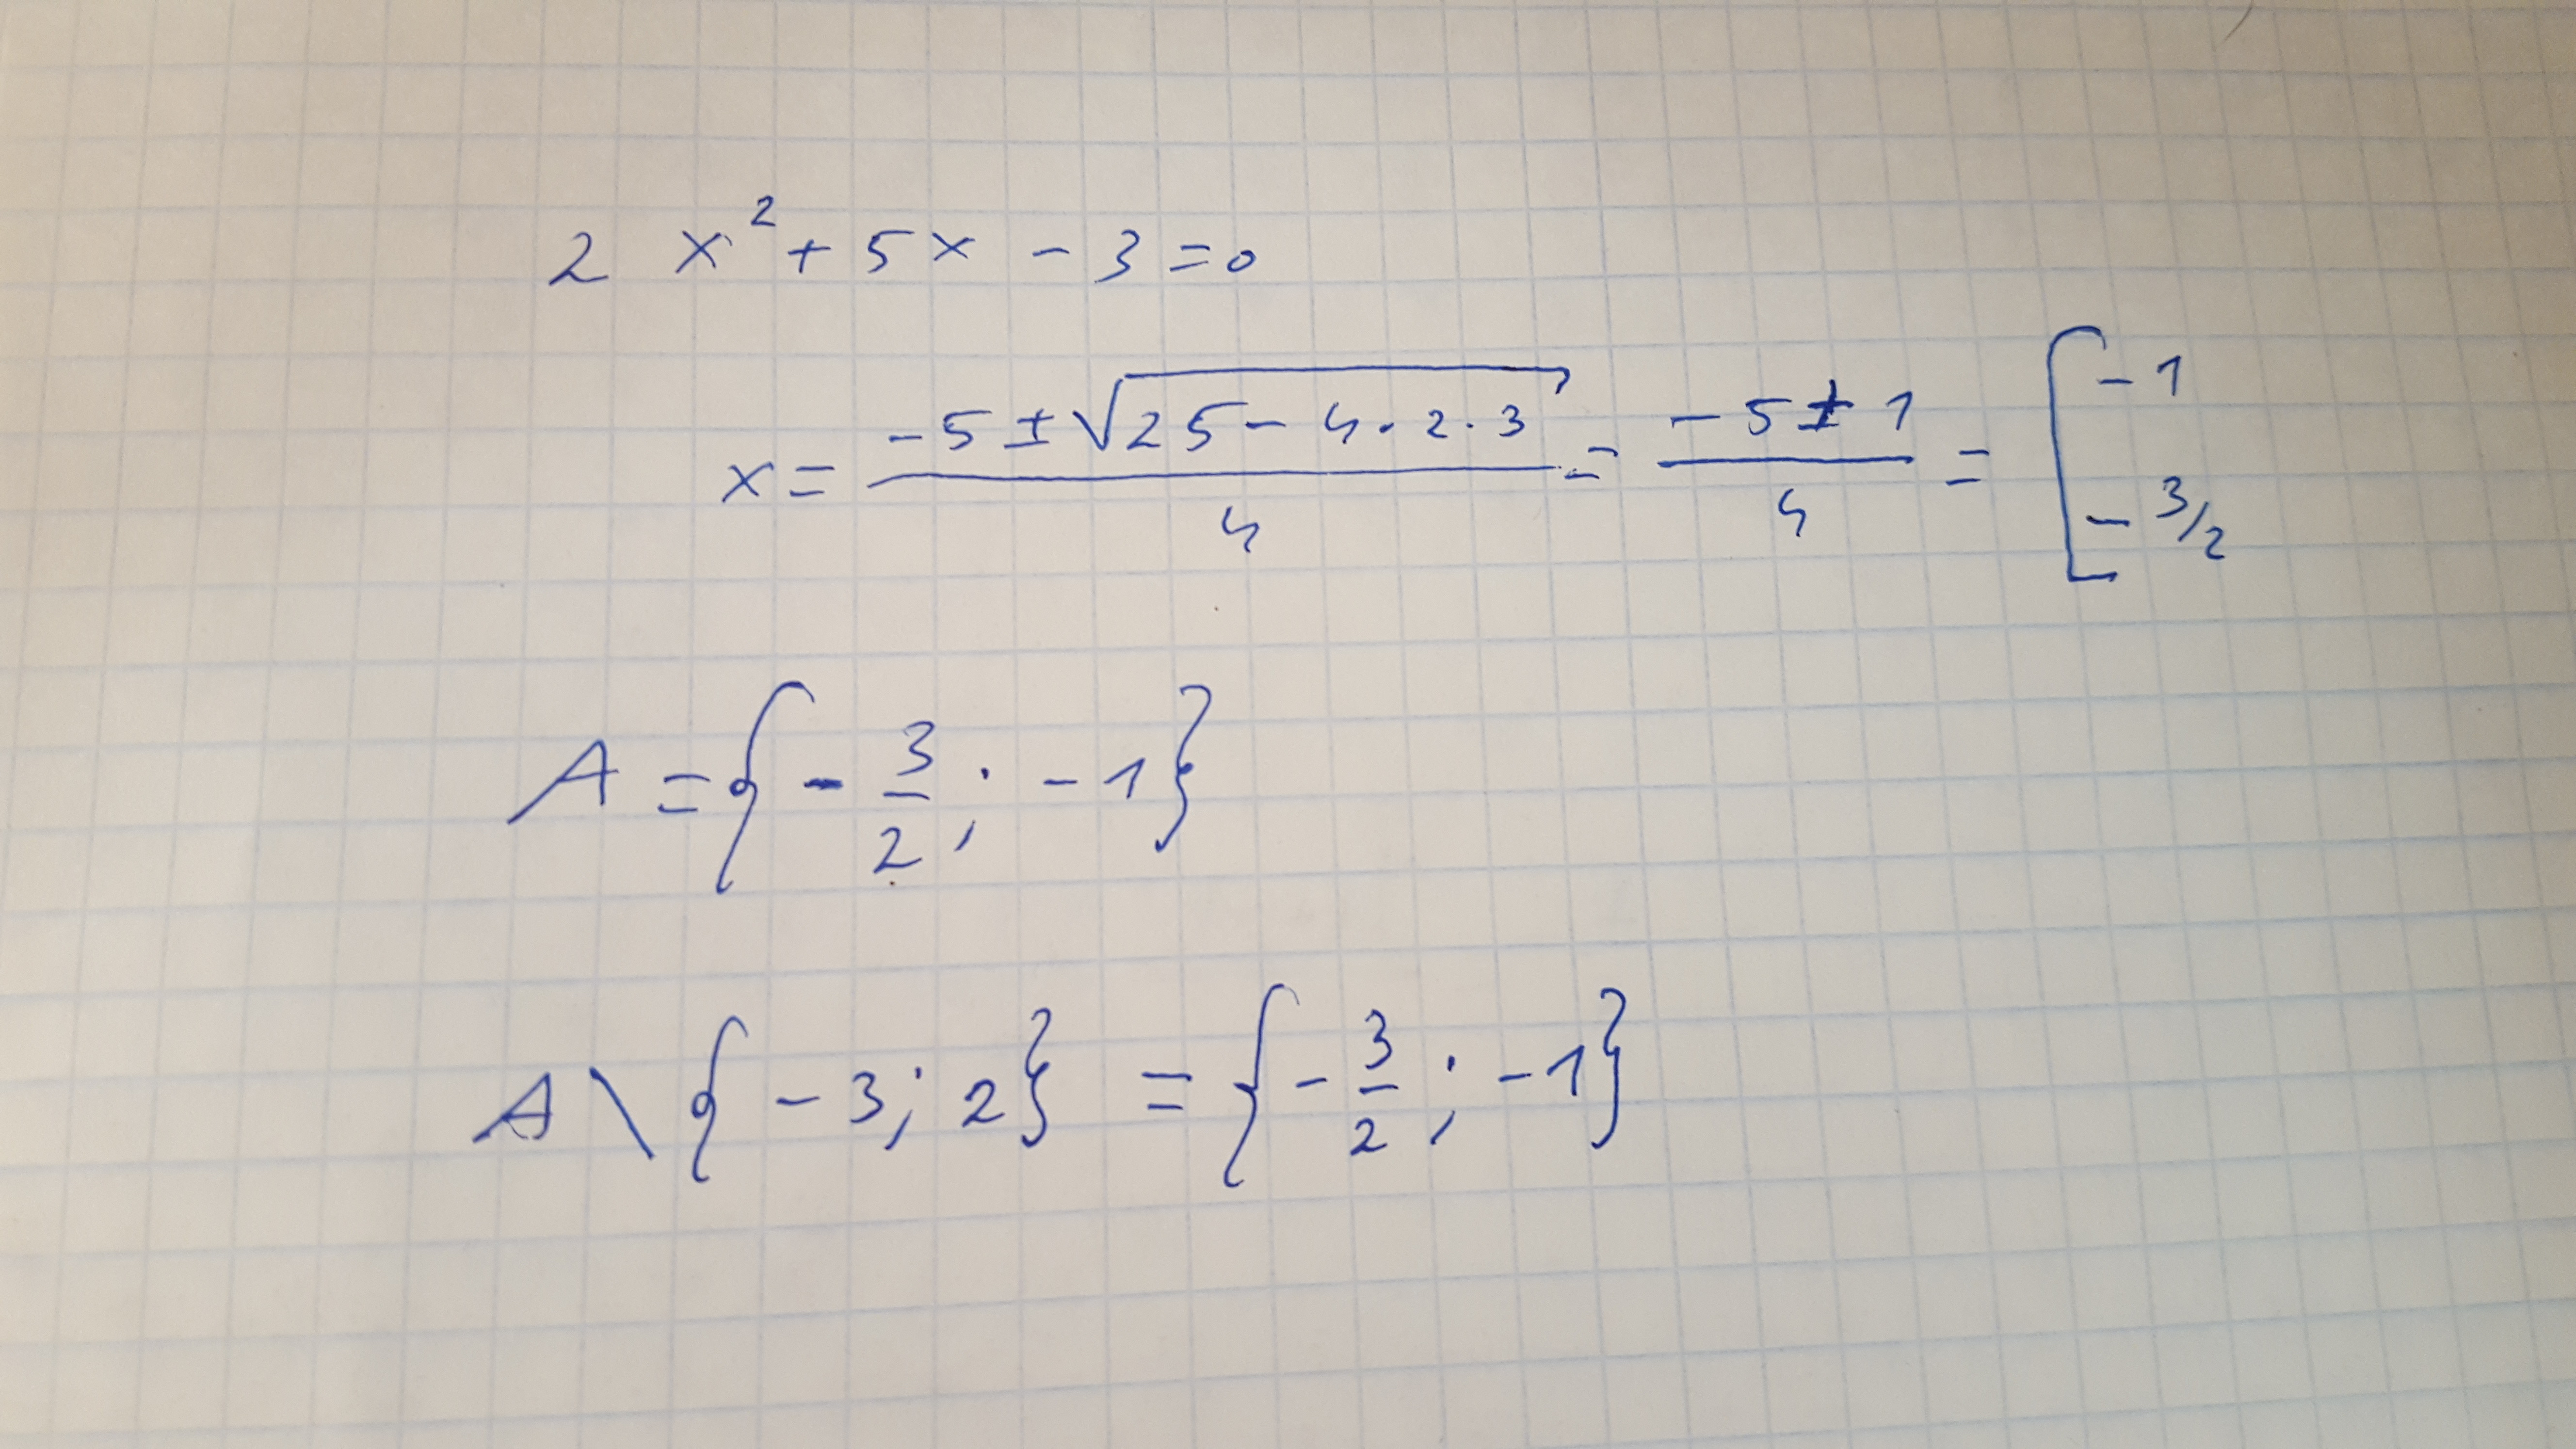 2 x² + 5x - 3 = 0
x = (-5 ± √(25 - 4·2·3))/4 = (-5 ± 1)/4 = [ -1 -3/2
A = { -3/2 ; -1 }
A \ { -3 ; 2 } = { -3/2 ; -1 }